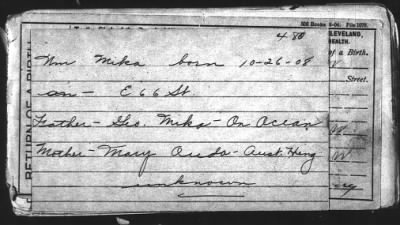 500 Books 6-04. File 1070.
CLEVELAND,
HEALTH.
of a Birth.
4 80
Wm Mika born 10-26-08
on - E 66 St
Street.
Father - Geo. Mika - On Ocean
W.
Mother - Mary Duda - Aust. Hung
W.
unknown
RETURN OF A BIRTH